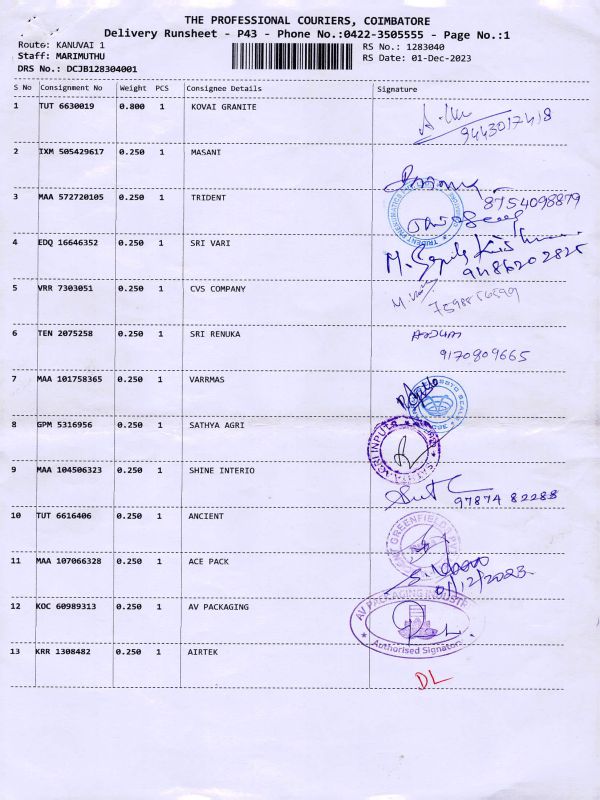 THE PROFESSIONAL COURIERS, COIMBATORE
Delivery Runsheet - P43 - Phone No.:0422-3505555 - Page No.:1
Route: KANUVAI 1 RS No.: 1283040
Staff: MARIMUTHU RS Date: 01-Dec-2023
DRS No.: DCJB128304001
S No Consignment No Weight PCS Consignee Details Signature
1 TUT 6630019 0.800 1 KOVAI GRANITE
9443017418
2 IXM 505429617 0.250 1 MASANI
3 MAA 572720105 0.250 1 TRIDENT 8754098879
4 EDQ 16646352 0.250 1 SRI VARI
9486202825
5 VRR 7303051 0.250 1 CVS COMPANY
6 TEN 2075258 0.250 1 SRI RENUKA
9170809665
7 MAA 101758365 0.250 1 VARRMAS
8 GPM 5316956 0.250 1 SATHYA AGRI
AGRI INPUTS
9 MAA 104506323 0.250 1 SHINE INTERIO
97874 82288
10 TUT 6616406 0.250 1 ANCIENT
GREENFIELD
11 MAA 107066328 0.250 1 ACE PACK
01/12/2023
12 KOC 60989313 0.250 1 AV PACKAGING
AV PACKAGING INDUSTR
Authorised Signator
13 KRR 1308482 0.250 1 AIRTEK
DL